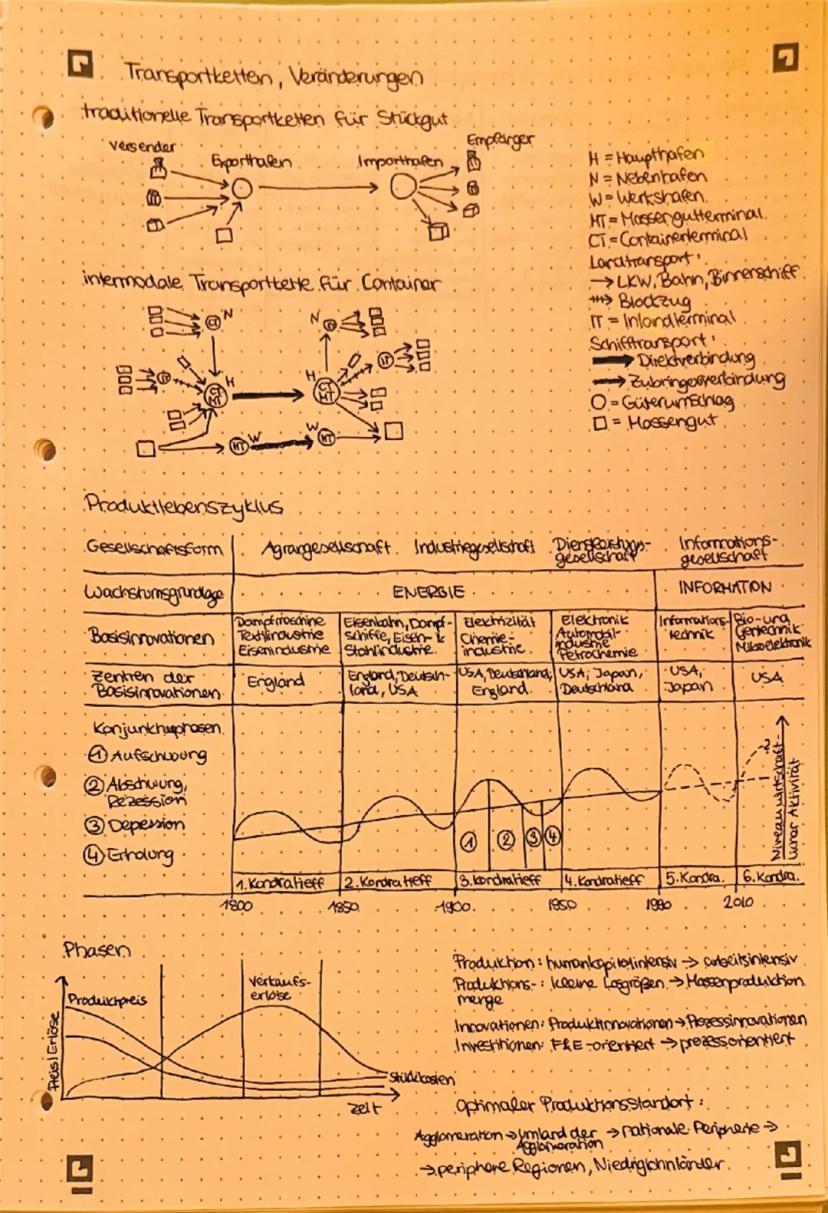 Transportketten, Veränderungen
traditionelle Transportketten für Stückgut
Versender
Exporthafen
Importhafen
Empfänger
H = Haupthafen
N = Nebenhafen
W = Werkshafen
MT = Massengutterminal
CT = Containerterminal
Landtransport:
→ LKW, Bahn, Binnenschiff
Blockzug
IT = Inlandterminal
Schifftransport:
Direktverbindung
Zubringerverbindung
O = Güterumschlag
□ = Massengut
intermodale Transportkette für Container
CT N
N
H
CT
MT
H
CT
MT
MT W
W MT
Produktlebenszyklus
Gesellschaftsform Agrargesellschaft Industriegesellschaft Dienstleistungs-
gesellschaft
Informations-
gesellschaft
Wachstumsgrundlage ENERGIE INFORMATION
Basisinnovationen
Dampfmaschine
Textilindustrie
Eisenindustrie
Eisenbahn, Dampf-
schiffe, Eisen- &
Stahlindustrie
Elektrizität
Chemie-
industrie
Elektronik
Automobil-
industrie
Petrochemie
Informations-
technik
Bio- und
Gentechnik
Mikroelektronik
Zentren der
Basisinnovationen
England
England, Deutsch-
land, USA
USA, Deutschland,
England
USA, Japan,
Deutschland
USA,
Japan
USA
Konjunkturphasen
① Aufschwung
② Abschwung,
Rezession
③ Depression
④ Erholung
① ② ③ ④
?
Niveau wirtschaft-
licher Aktivität
1. Kondratieff 2. Kondratieff 3. Kondratieff 4. Kondratieff 5. Kondra. 6. Kondra.
1800 1850 1900 1950 1990 2010
Phasen
Preis/Erlöse
Produktpreis
Verkaufs-
erlöse
Stückkosten
Zeit
Produktion: humankapitalintensiv → arbeitsintensiv
Produktions-: kleine Losgrößen → Massenproduktion
menge
Innovationen: Produktinnovationen → Prozessinnovationen
Investitionen: F&E-orientiert → prozessorientiert
Optimaler Produktionsstandort:
Agglomeration → Umland der → nationale Peripherie →
Agglomeration
→ periphere Regionen, Niedriglohnländer